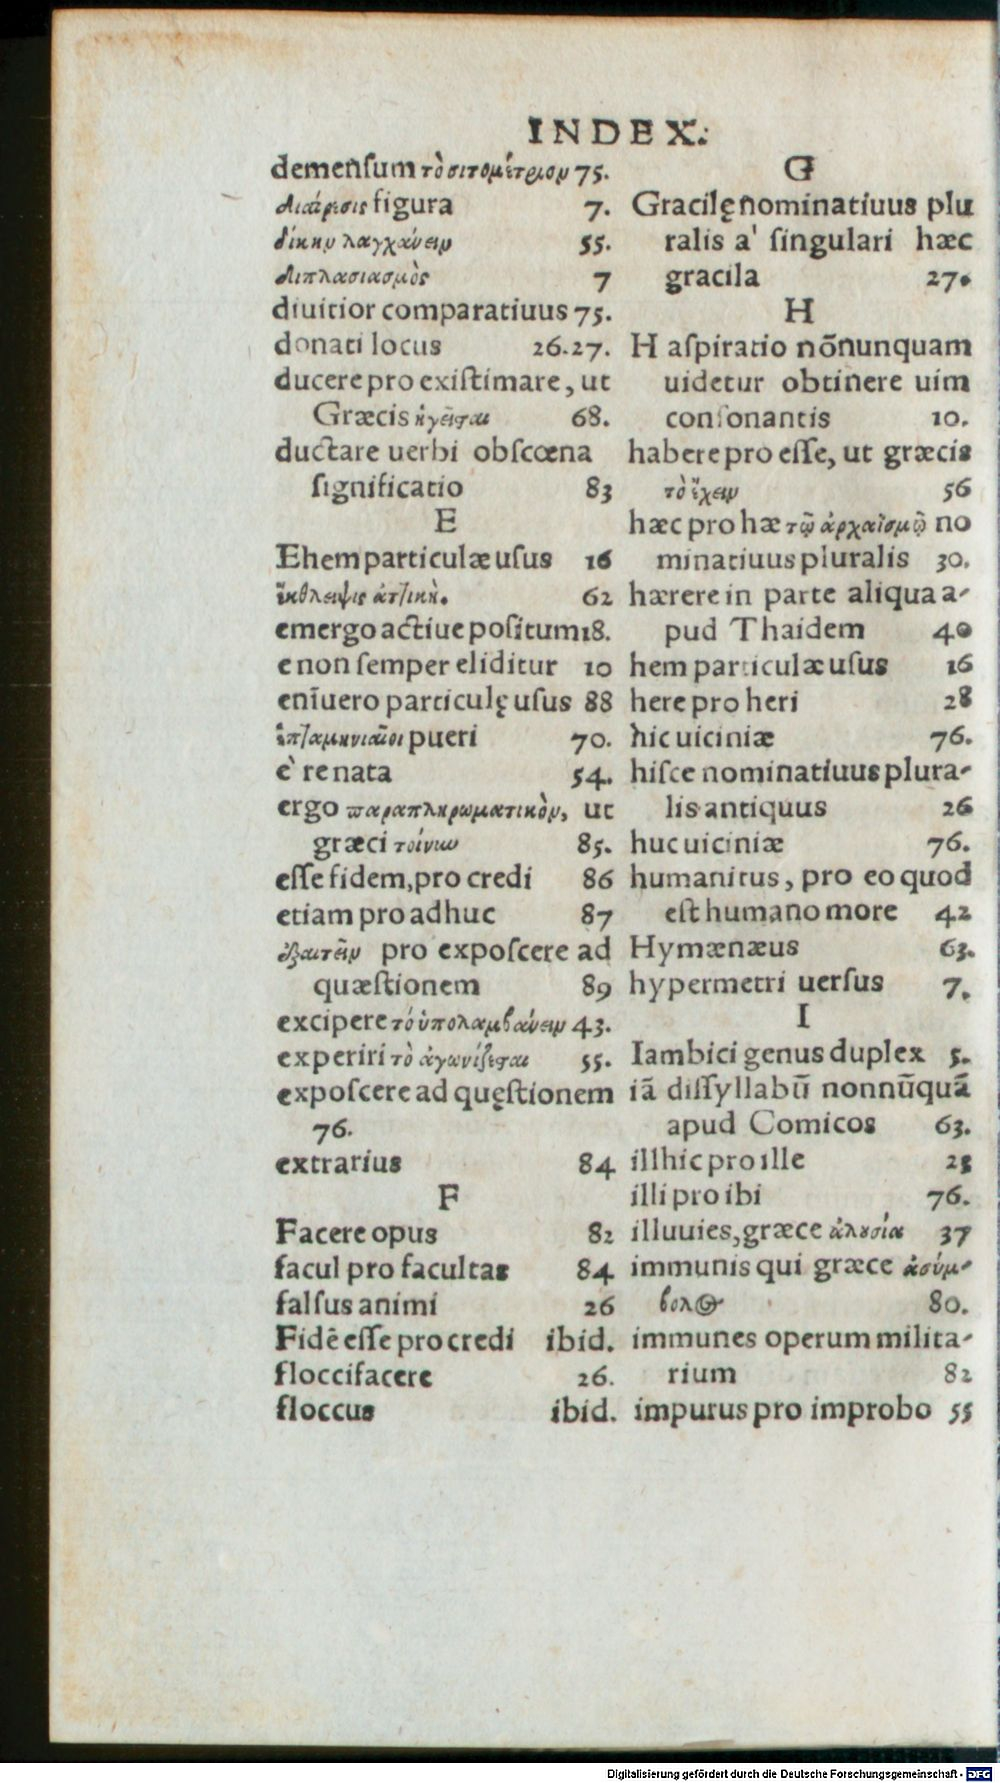 INDEX.
demensum τὸ σιτομέτριον 75.
διαίρεσις figura 7.
δίκην λαγχάνειν 55.
διπλασιασμὸς 7
diuitior comparatiuus 75.
donati locus 26.27.
ducere pro existimare, ut
Græcis ἡγεῖσθαι 68.
ductare uerbi obscœna
significatio 83
E
Ehem particulæ usus 16
ἔκθλειψις ἀττικὴ. 62
emergo actiue positum 18.
e non semper eliditur 10
enĩuero particulę usus 88
ἑπταμηνιαῖοι pueri 70.
è re nata 54.
ergo παραπληρωματικὸν, ut
græci τοίνυν 85.
esse fidem, pro credi 86
etiam pro adhuc 87
ἐξαιτεῖν pro exposcere ad
quæstionem 89
excipere τὸ ὑπολαμβάνειν 43.
experiri τὸ ἀγωνίζεσθαι 55.
exposcere ad quęstionem
76.
extrarius 84
F
Facere opus 82
facul pro facultas 84
falsus animi 26
Fidē esse pro credi ibid.
floccifacere 26.
floccus ibid.
G
Gracilę nominatiuus plu
ralis a' singulari hæc
gracila 27.
H
H aspiratio nõnunquam
uidetur obtinere uim
consonantis 10.
habere pro esse, ut græcis
τὸ ἔχειν 56
hæc pro hæ τῷ ἀρχαϊσμῷ no
minatiuus pluralis 30.
hærere in parte aliqua a-
pud Thaidem 40
hem particulæ usus 16
here pro heri 28
hic uiciniæ 76.
hisce nominatiuus plura-
lis antiquus 26
huc uiciniæ 76.
humanitus, pro eo quod
est humano more 42
Hymænæus 63.
hypermetri uersus 7.
I
Iambici genus duplex 5.
iã dissyllabũ nonnũquã
apud Comicos 63.
illhic pro ille 25
illi pro ibi 76.
illuuies, græce ἀλουσία 37
immunis qui græce ἀσύμ-
βολος 80.
immunes operum milita-
rium 82
impurus pro improbo 55
Digitalisierung gefördert durch die Deutsche Forschungsgemeinschaft - DFG